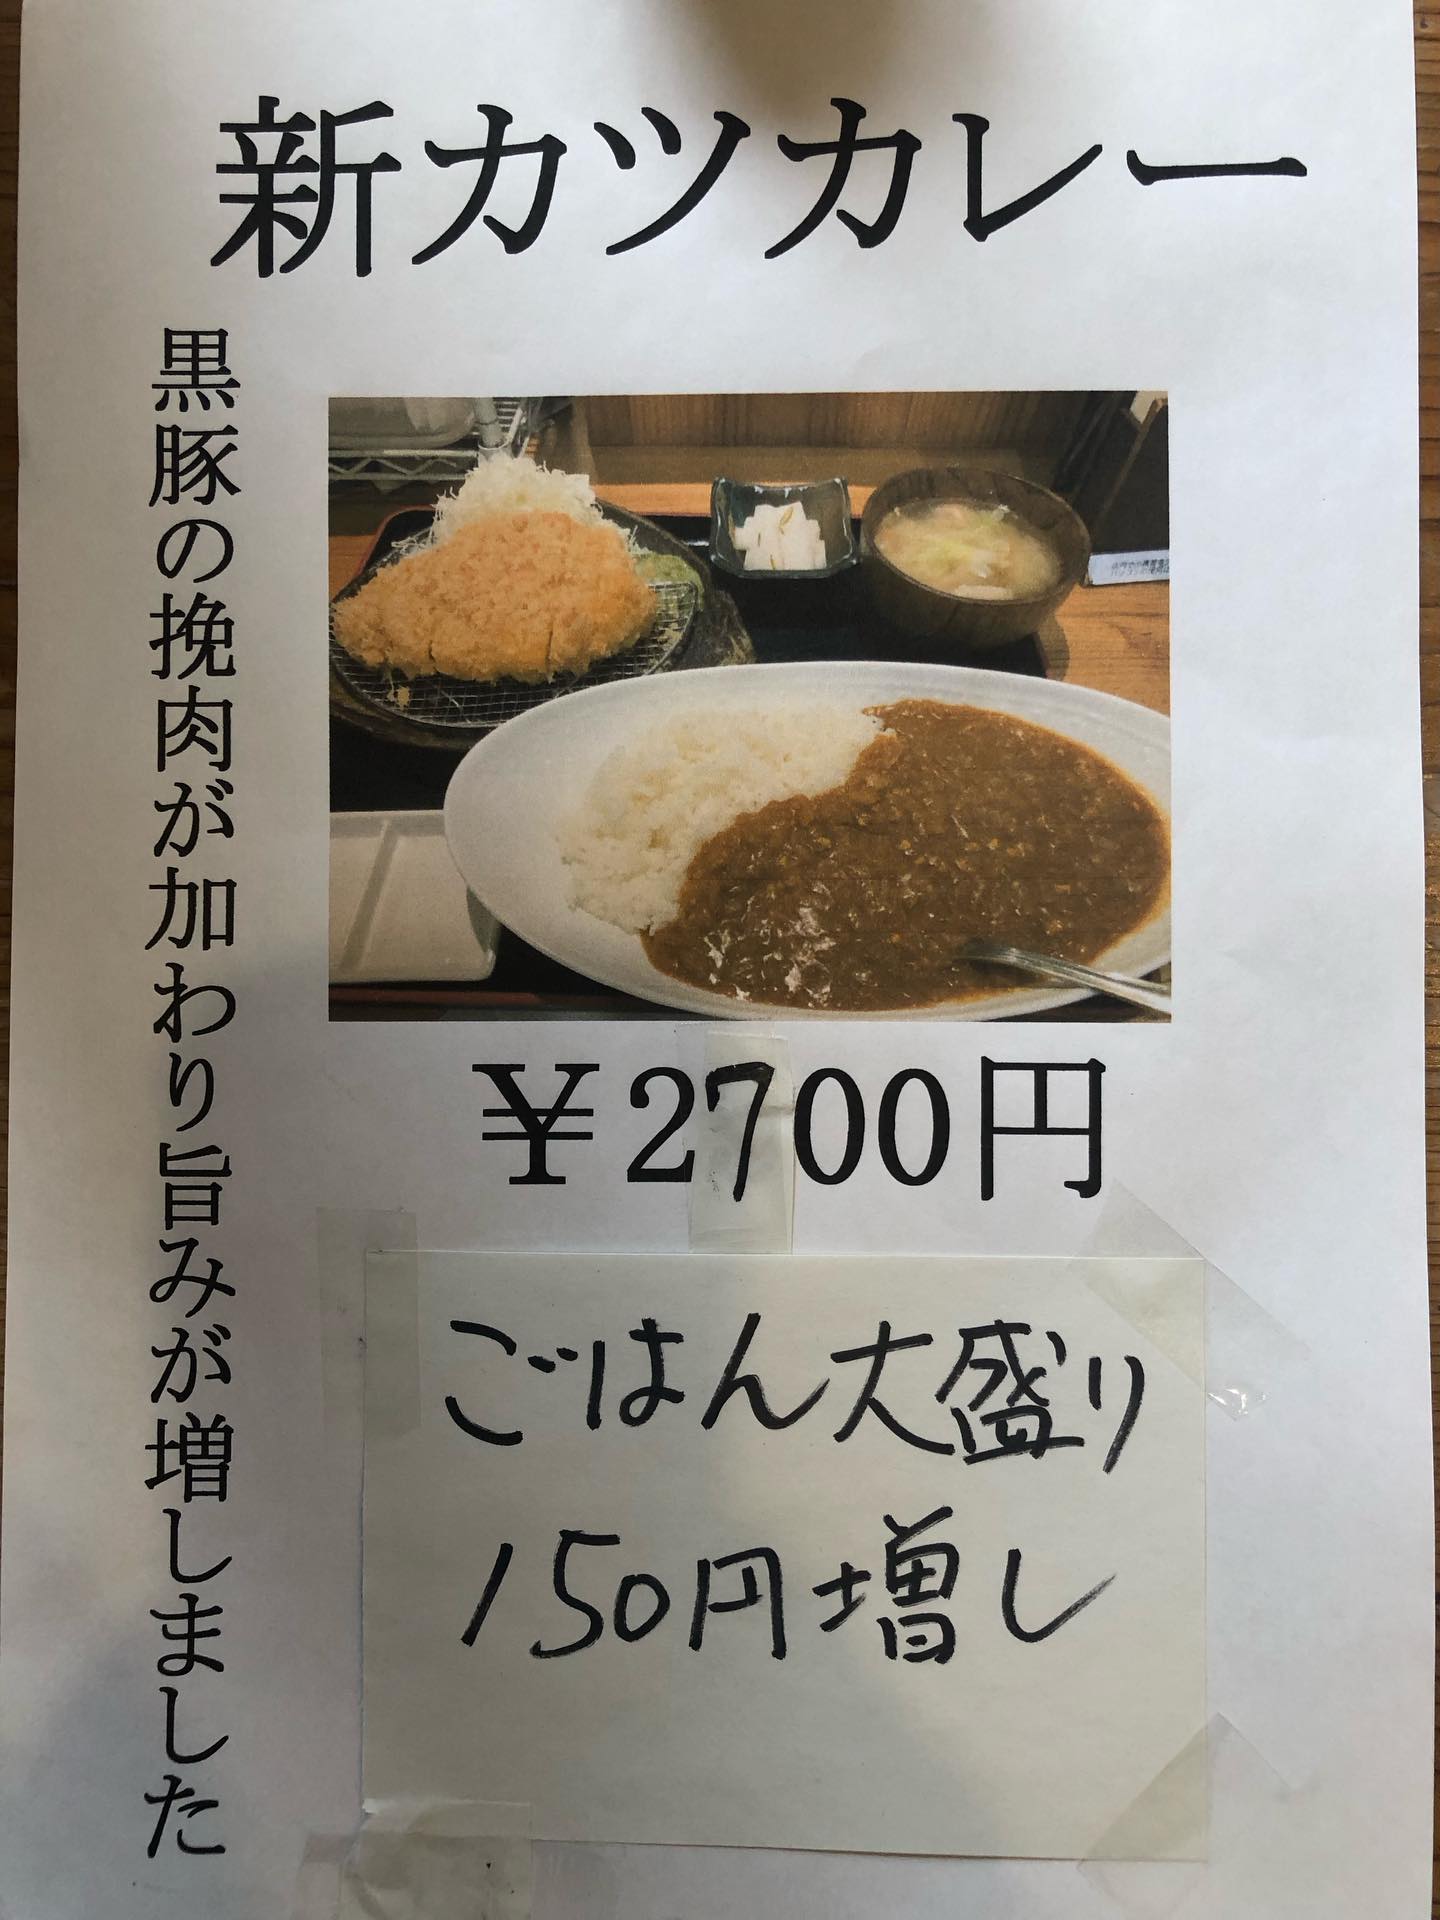 新カツカレー
黒豚の挽肉が加わり旨みが増しました
￥2700円
ごはん大盛り
150円増し